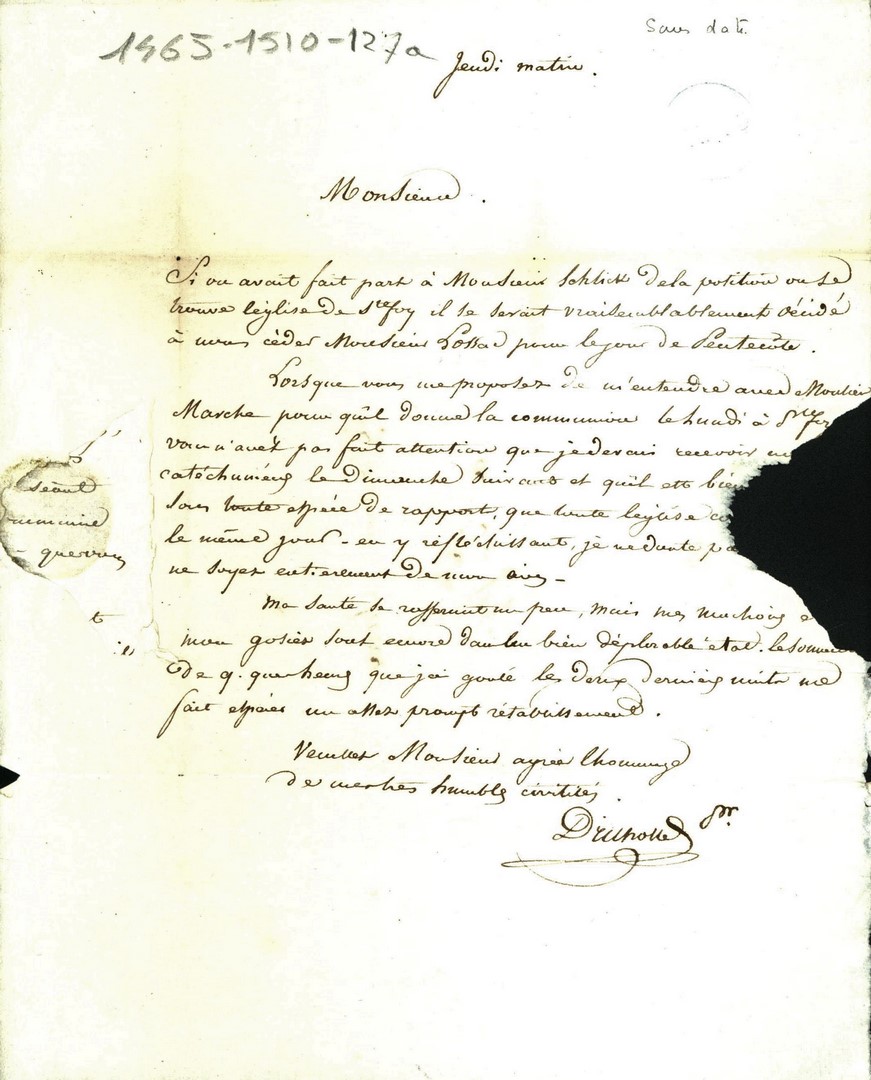 Sans date
1965-1510-127a
Jeudi matin.
Monsieur.
Si on avait fait part à Monsieur Schlick dela position ou se
trouve leglise de Ste foy il se serait vraisemblablement décidé
à nous céder Monsieur pour le jour de Pentecôte.
Lorsque vous me proposez de m'entendre avec Monsieur
Marche pour qu'il donne la communion le lundi à Ste foy
vous n'avez pas fait attention que je devais recevoir
catéchumènes le Dimanche suivant et qu'il est bien
sous toute espèce de rapport, que toute leglise co
le même jour - en y réfléchissant, je ne doute pa
ne soyez entierement de mon avis -
Ma santé se raffermit un peu, mais mes machoires e
mon gosier sont encore dans un bien déplorable état. Le sommeil
de q. que heures que j'ai gouté les deux dernières nuits me
fait espérer un assez prompt rétablissement.
Veuillez Monsieur agréer lhommage
de mes très humbles civilités.
séant
t